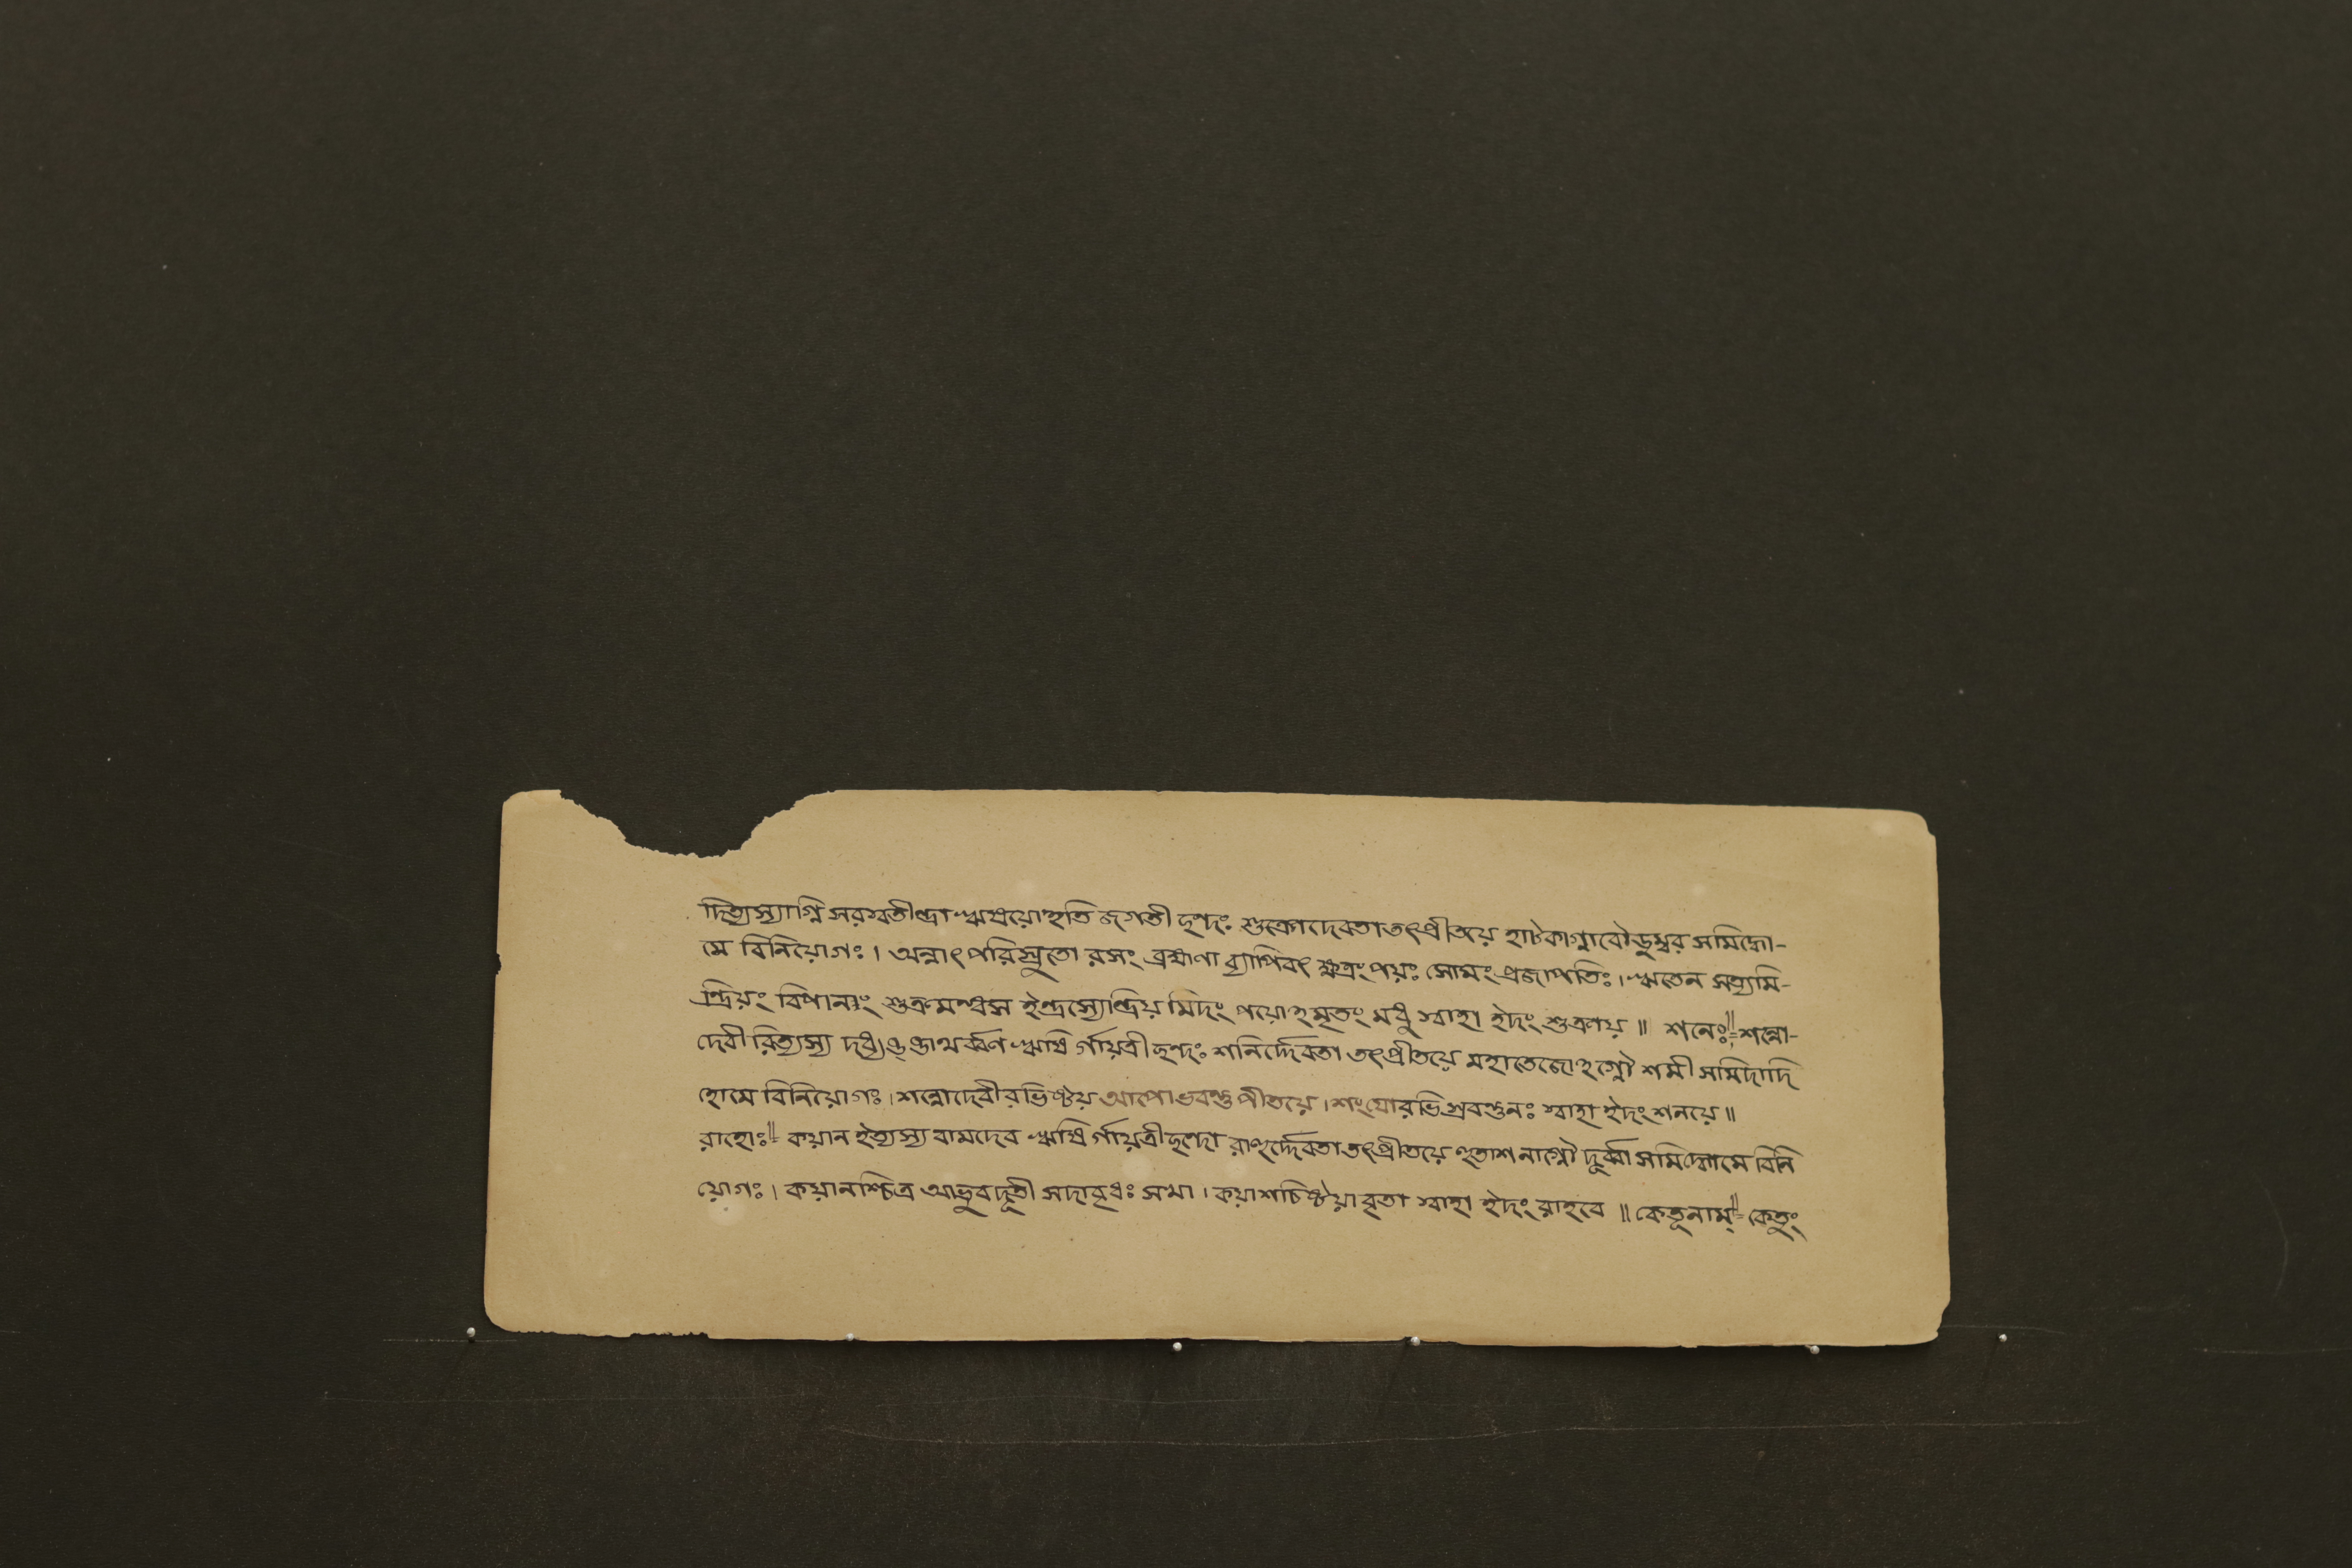 দিত্যস্যাগ্নি সরস্বতীন্দ্রা ঋষয়োহতি জগতী ছন্দঃ শুক্রোদেবতা তৎপ্রীতয়ে হাটকাগ্নাবৌডুম্বর সমিদ্ধো-
মে বিনিয়োগঃ। অন্নাৎ পরিস্রুতো রসং ব্রহ্মণা ব্যাপিবৎ ক্ষত্রং পয়ঃ সোমং প্রজাপতিঃ। ঋতেন সত্যমি-
ন্দ্রিয়ং বিপানং শুক্রমন্ধস ইন্দ্রস্যেন্দ্রিয় মিদং পয়োহমৃতং মধু স্বাহা ইদং শুক্রায়॥ শনেঃ॥= শন্নো-
দেবী রিত্যস্য আথর্ব্বণ ঋষি র্গায়ত্রী ছন্দঃ শনির্দ্দেবতা তৎপ্রীতয়ে মহাতেজোহগ্নৌ শমী সমিদাদি
হোমে বিনিয়োগঃ। শন্নোদেবীরভিষ্টয় আপোভবন্তু পীতয়ে। শংযোরভিস্রবন্তুনঃ স্বাহা ইদং শনয়ে॥
রাহোঃ॥= কয়ান ইত্যস্য বামদেব ঋষি র্গায়ত্রীছন্দো রাহুর্দ্দেবতা তৎপ্রীতয়ে হুতাশনাগ্নৌ দূর্ব্বা সমিদ্ধোমে বিনি
য়োগঃ। কয়ানশ্চিত্র আভুবদূতী সদাবৃধঃ সখা। কয়াশচিষ্ঠয়া বৃতা স্বাহা ইদং রাহবে॥ কেতূনাম্॥= কেতুং